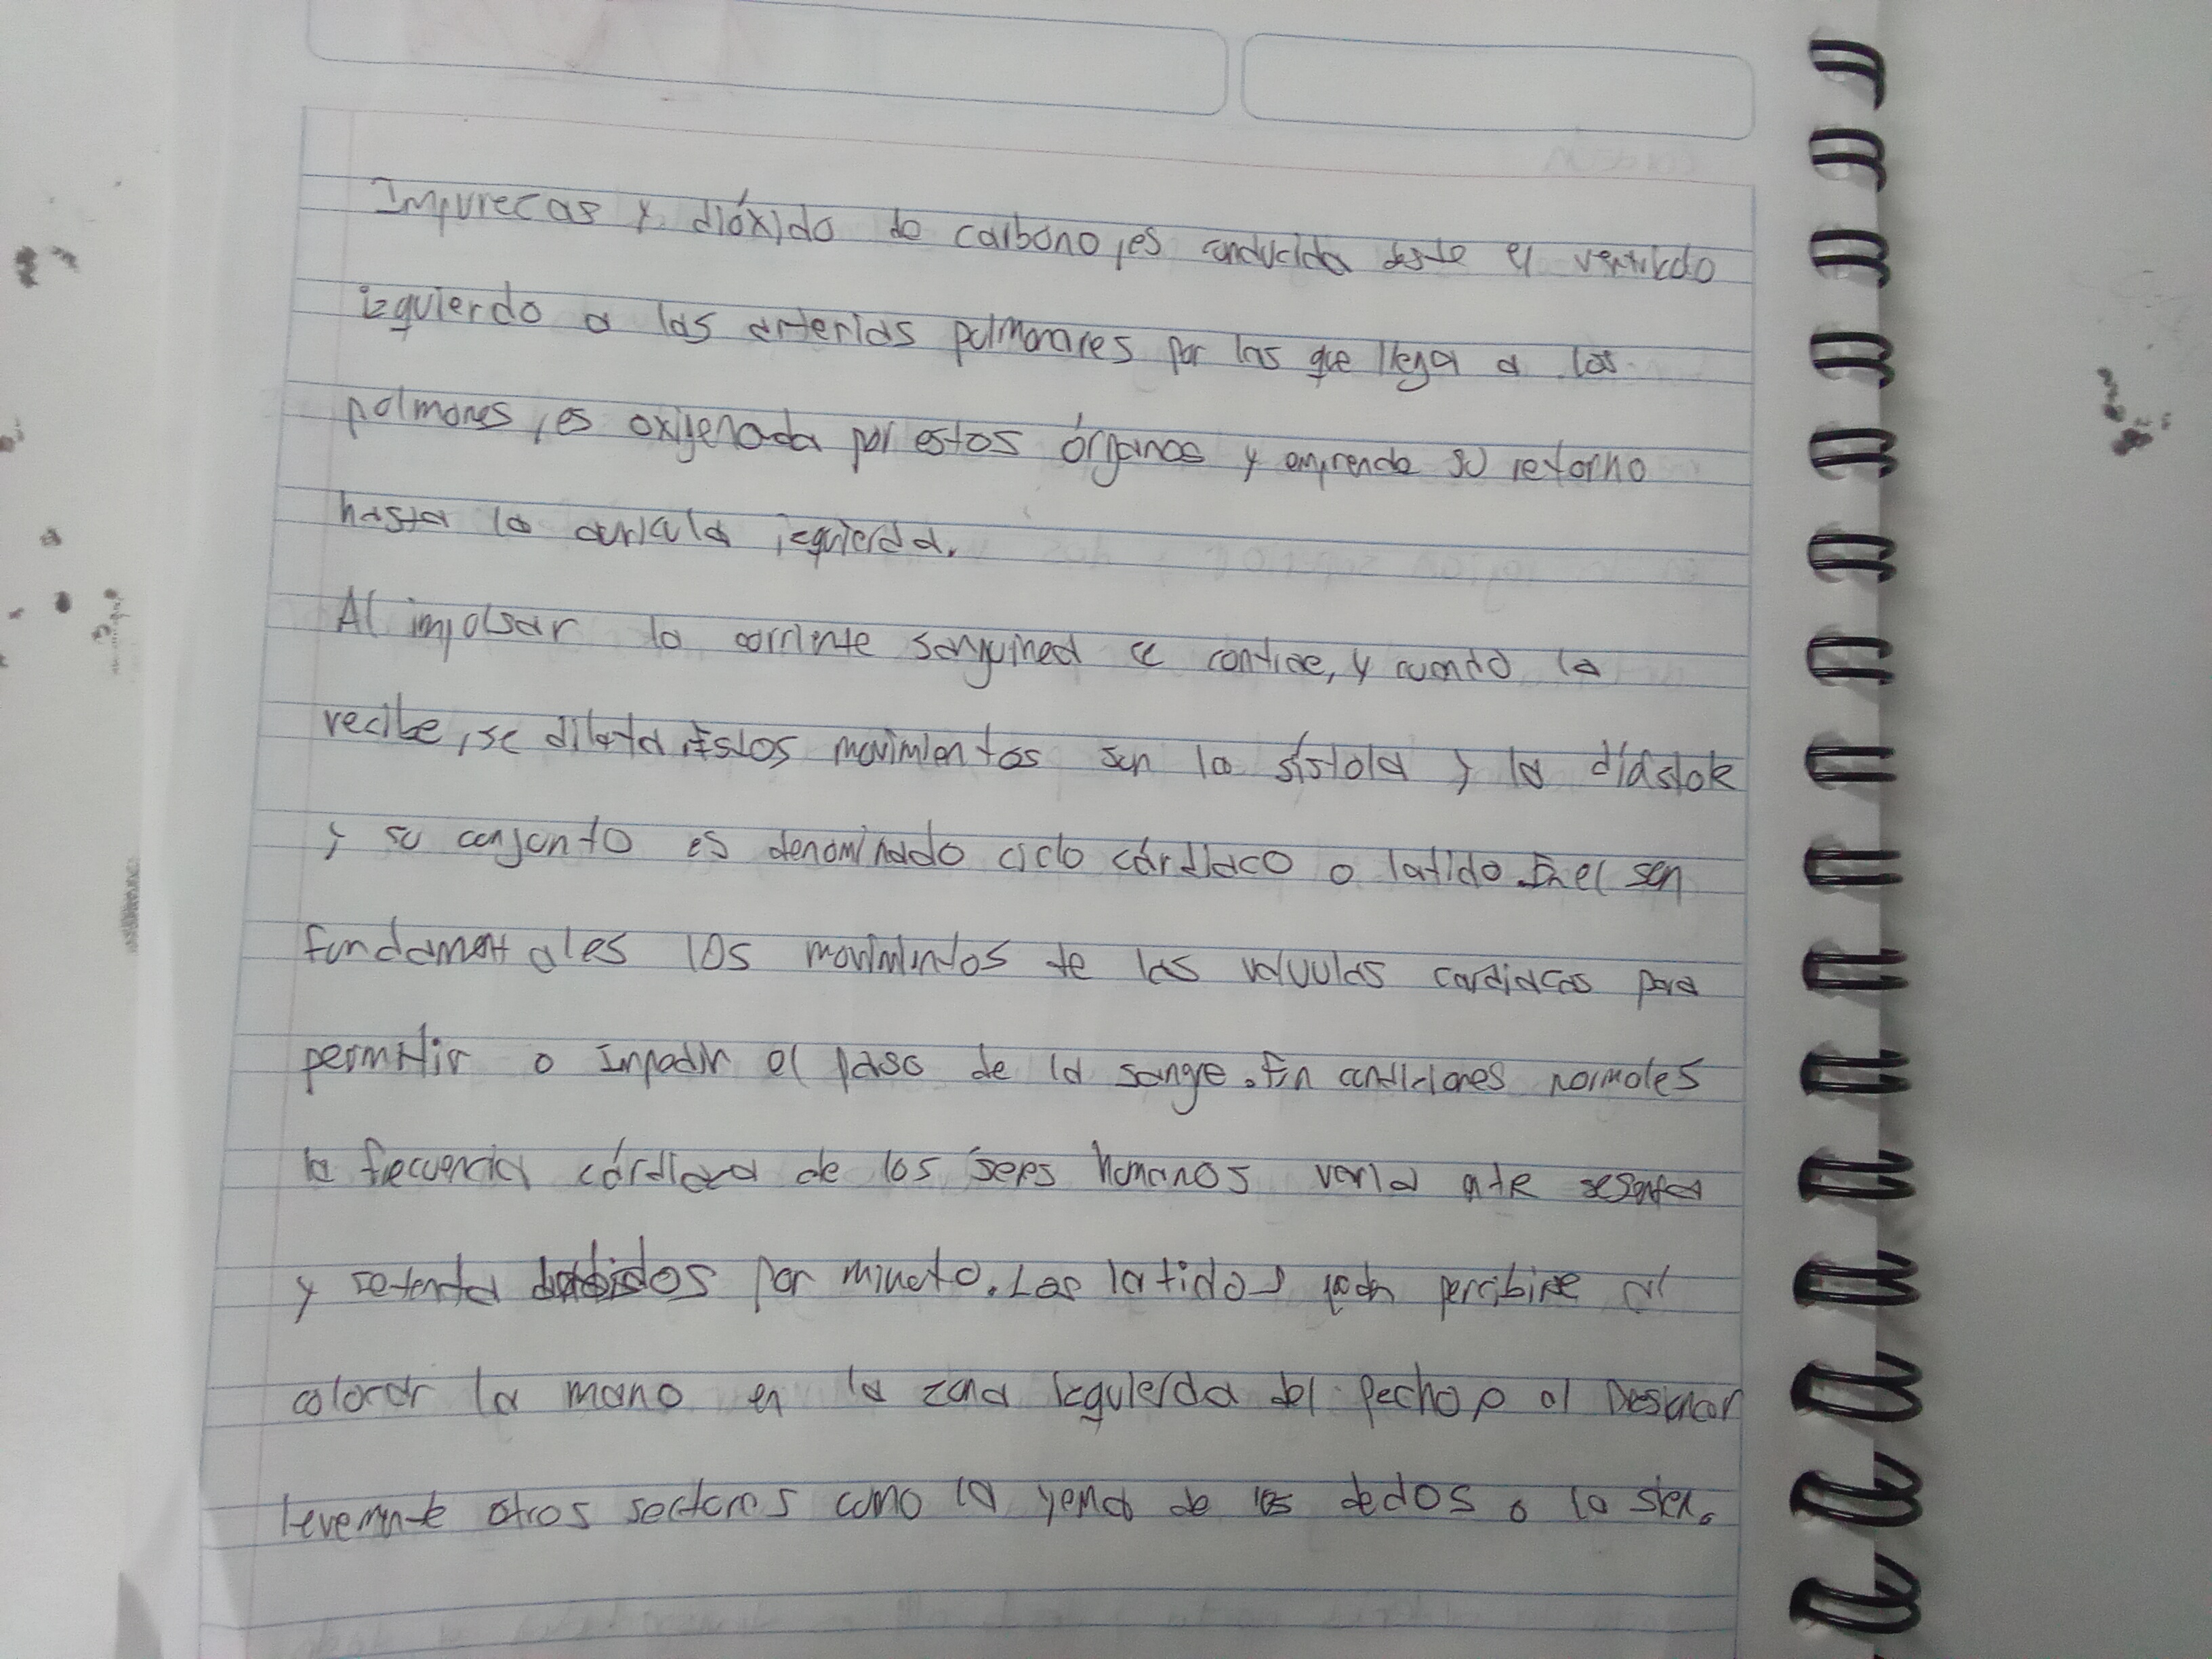 Impurecas y dióxido de carbono, es conducida desde el ventriculo
izquierdo a las arterias pulmonares por las que llega a los
pulmones, es oxigenada por estos órganos y emprende su retorno
hasta la auricula izquierda.
Al impulsar la corriente sanguinea se contrae, y cuando la
recibe, se dilata. Estos movimientos son la sístola y la diástole
y su conjunto es denominado ciclo cárdiaco o latido. En el son
fundamentales los movimintos de las valvulas cardiacas para
permitir o Impedir el paso de la sangre. En condiciones normales
la frecuencia cárdiaca de los seres humanos varia entre sesenta
y setenta por minuto. Los latidos pueden percibirse al
colocar la mano en la zona izquierda del pecho o al
levemente otros sectores como la yema de los dedos o la sien.